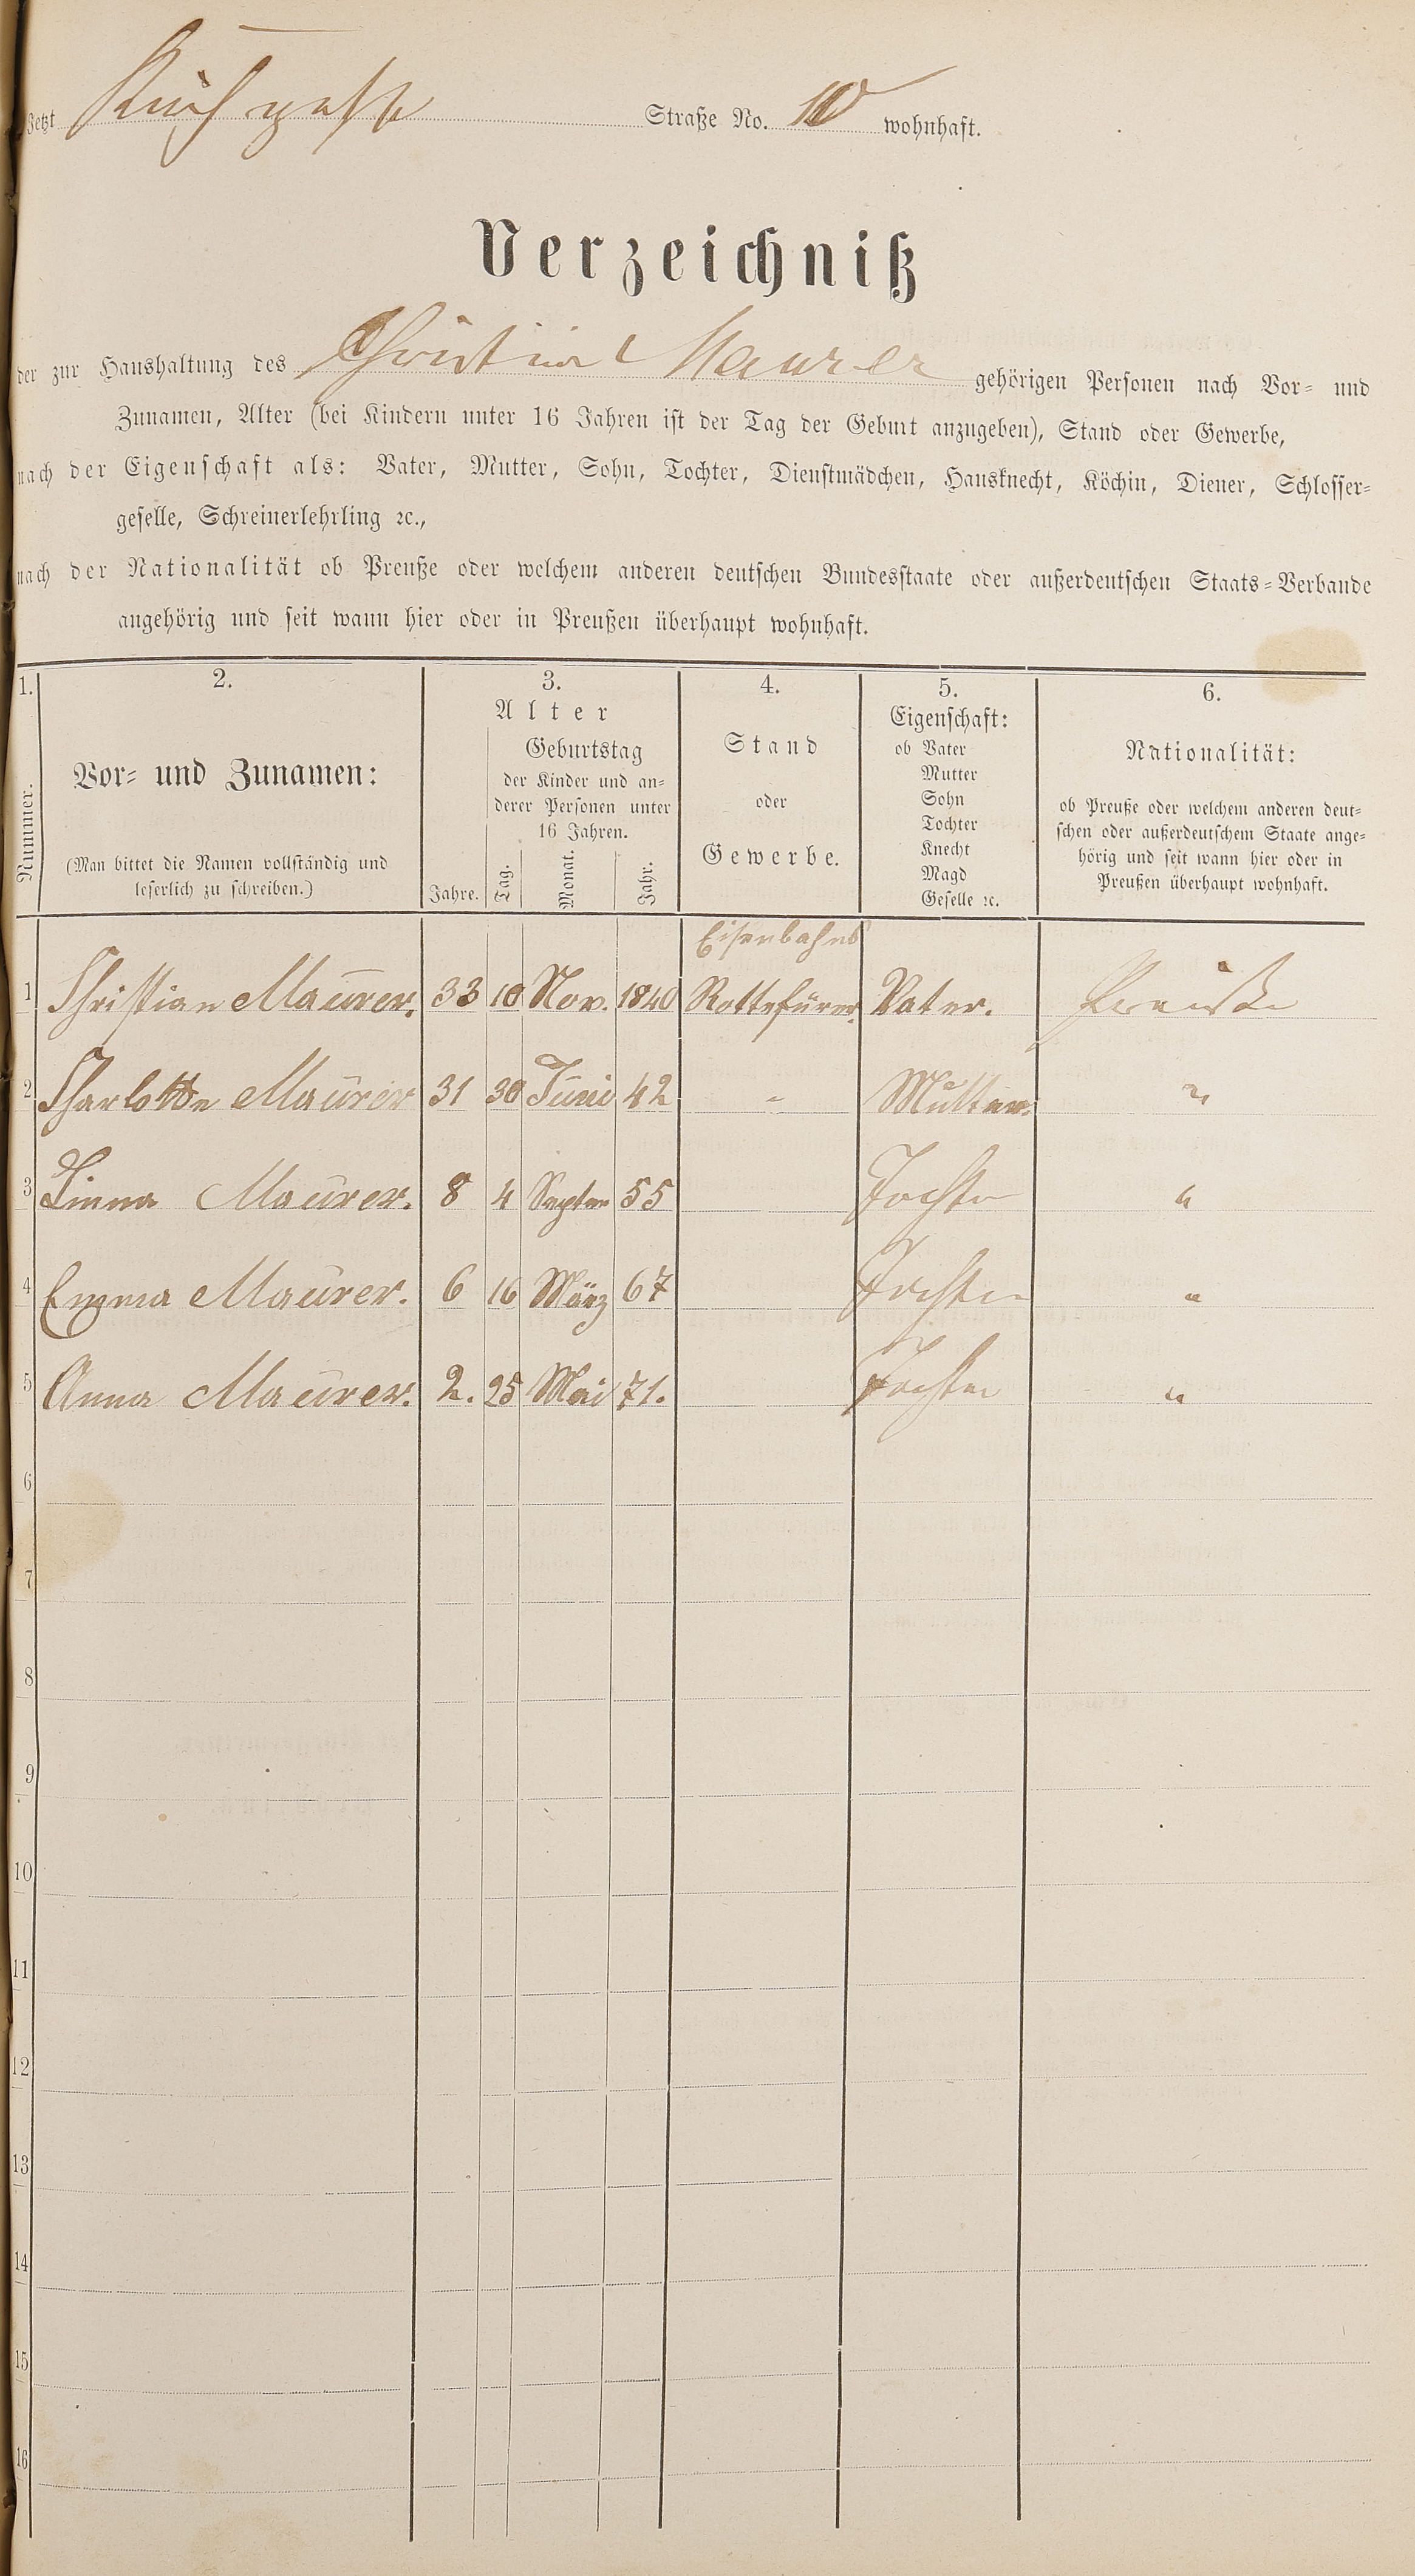 Jetzt Kirchgasse Straße No. 10 wohnhaft.
Verzeichniß
der zur Haushaltung des Christian Maurer gehörigen Personen nach Vor- und
Zunamen, Alter (bei Kindern unter 16 Jahren ist der Tag der Geburt anzugeben), Stand oder Gewerbe,
nach der Eigenschaft als: Vater, Mutter, Sohn, Tochter, Dienstmädchen, Hausknecht, Köchin, Diener, Schlosser-
geselle, Schreinerlehrling ꝛc.,
nach der Nationalität ob Preuße oder welchem anderen deutschen Bundesstaate oder außerdeutschen Staats-Verbande
angehörig und seit wann hier oder in Preußen überhaupt wohnhaft.
1.
Nummer.
2.
Vor- und Zunamen:
(Man bittet die Namen vollständig und
leserlich zu schreiben.)
3.
Alter
Jahre.
Geburtstag
der Kinder und an-
derer Personen unter
16 Jahren.
Tag. Monat. Jahr.
4.
Stand
oder
Gewerbe.
5.
Eigenschaft:
ob Vater
Mutter
Sohn
Tochter
Knecht
Magd
Geselle ꝛc.
6.
Nationalität:
ob Preuße oder welchem anderen deut-
schen oder außerdeutschem Staate ange-
hörig und seit wann hier oder in
Preußen überhaupt wohnhaft.
Eisenbahnb
1 Christian Maurer. 33 10 Nov. 1840 Rottefürer. Vater. Preuße
2 Charlotte Maurer 31 30 Juni 42 - Mutter. "
3 Linna Maurer. 8 4 Septer 55 Tochter "
4 Emma Maurer. 6 16 März 67 Tochter "
5 Anna Maurer. 2. 25 Mai 71. Tochter "
6
7
8
9
10
11
12
13
14
15
16